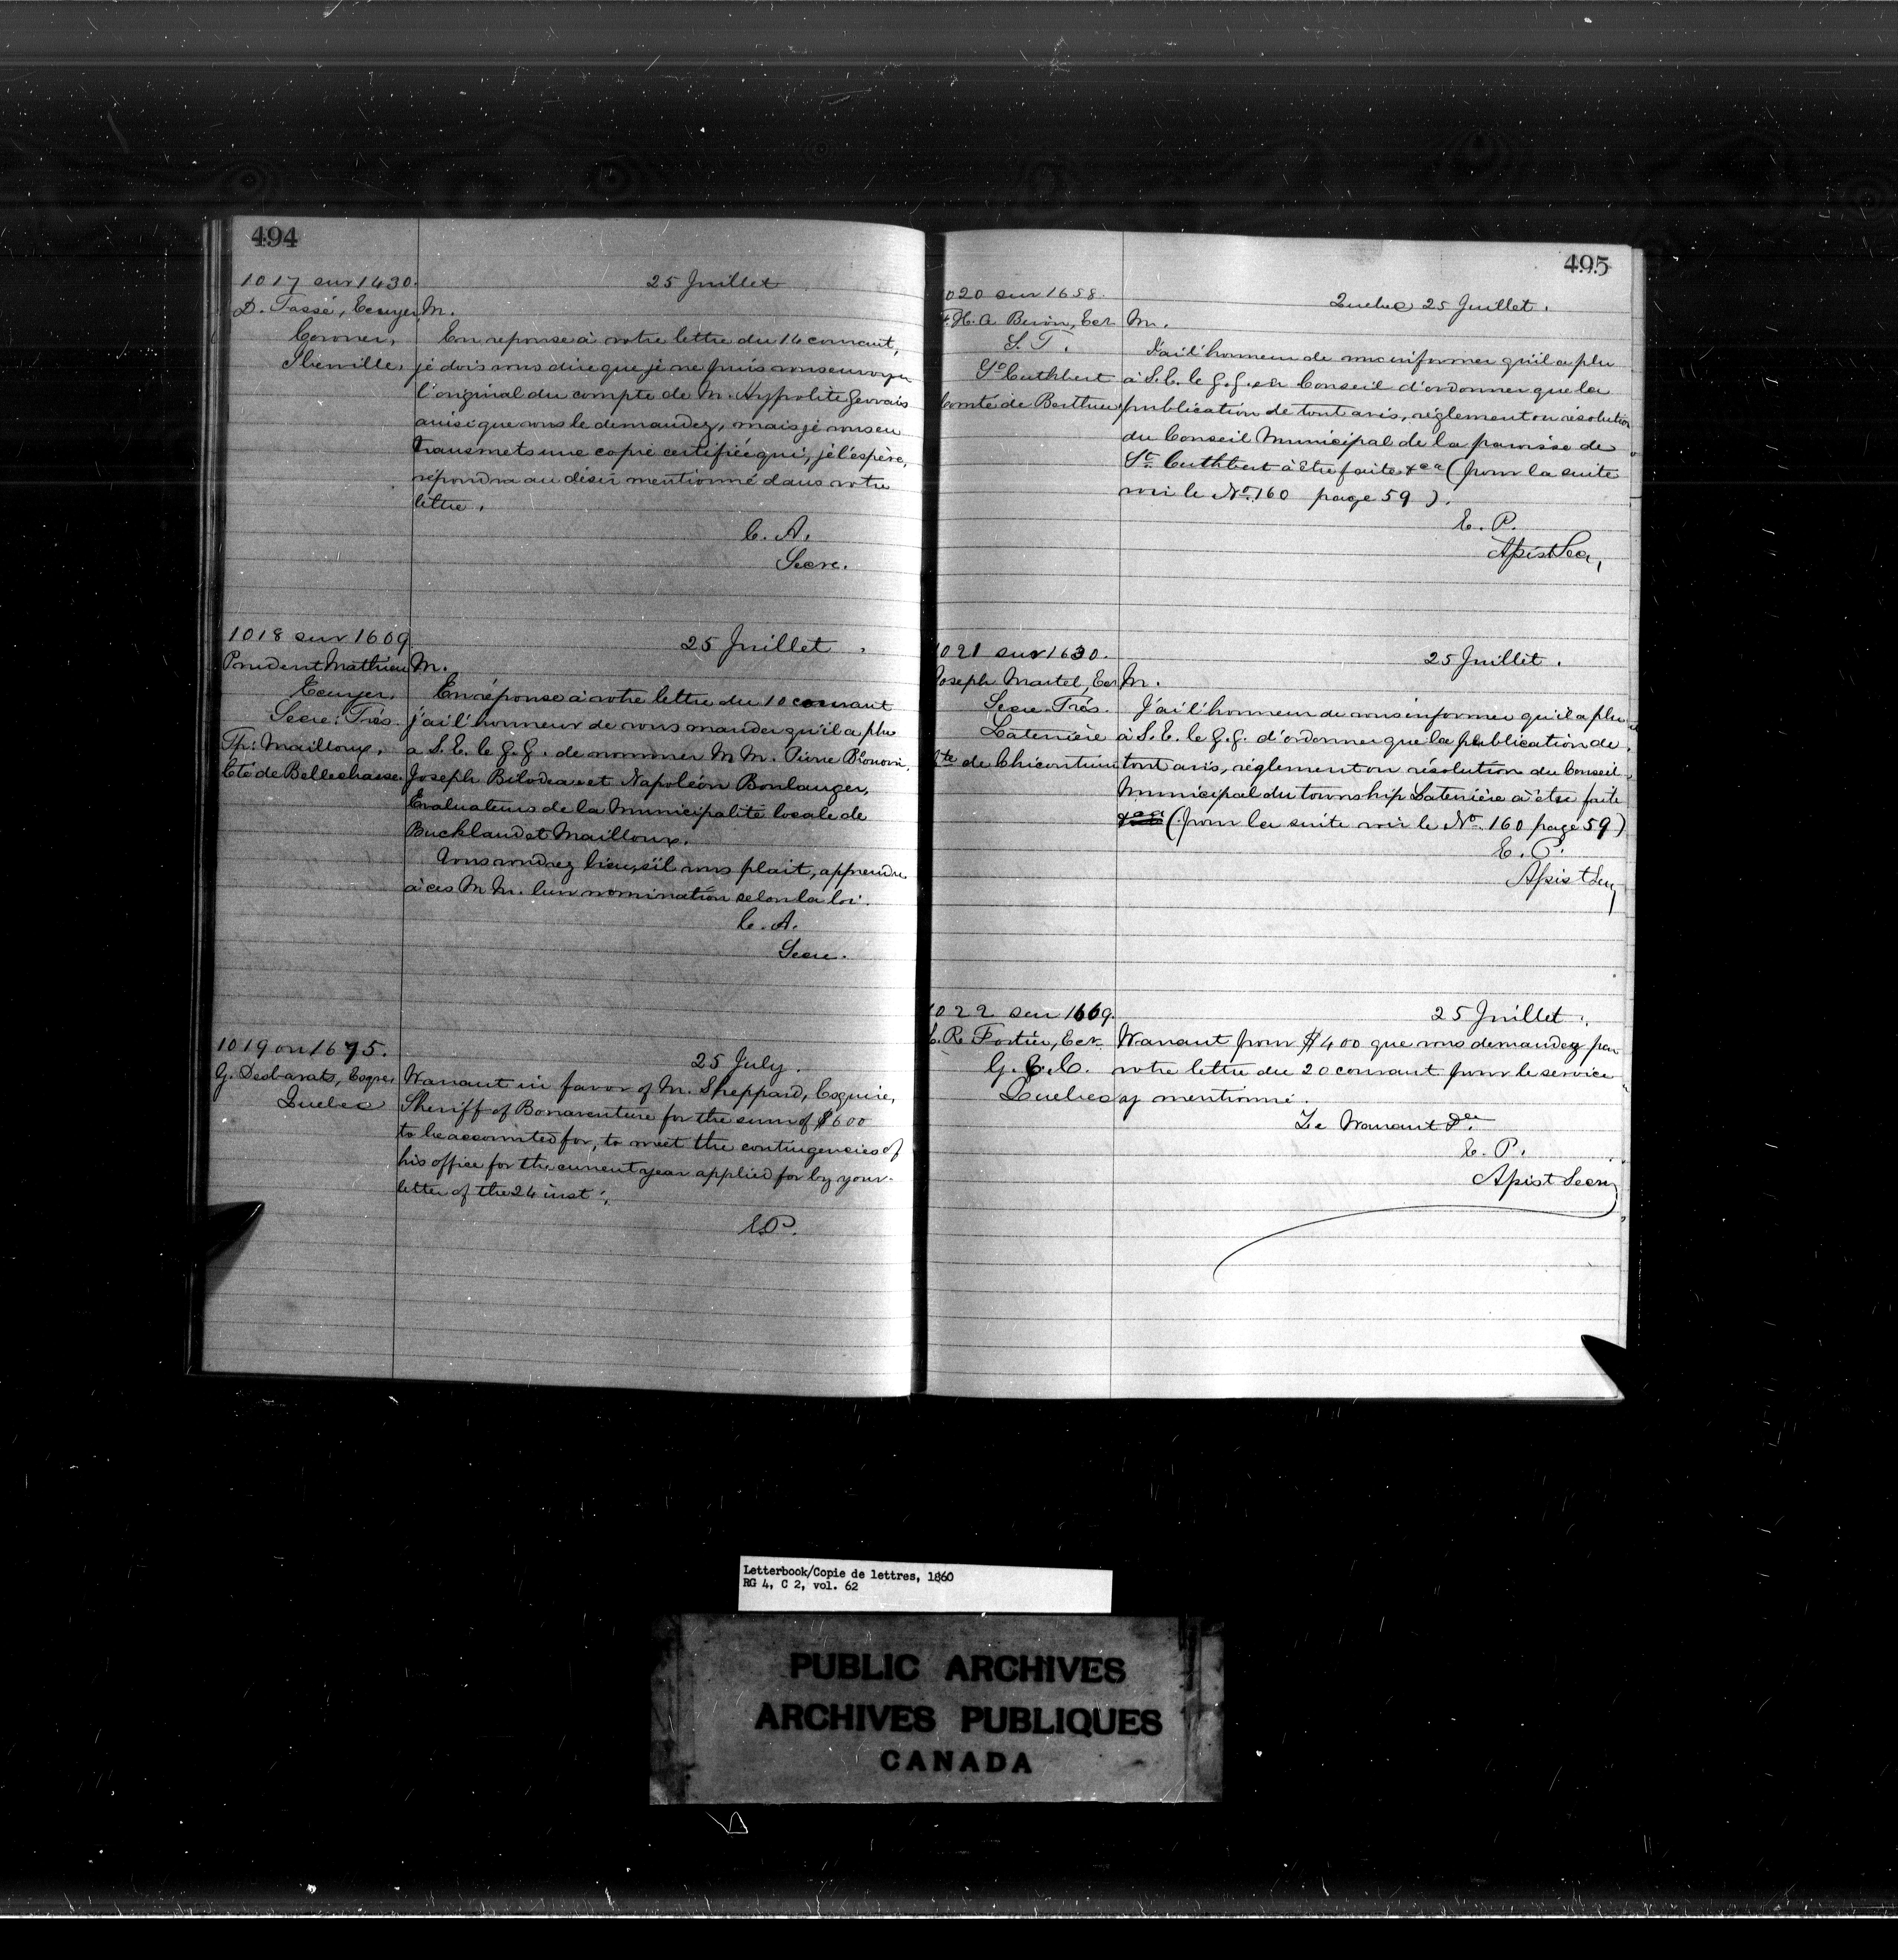 494
1017 sur 1430.
25 Juillet
D. Tassé, Ecuyer,
Coroner,
Iberville.
M.
En reponse à votre lettre du 14 courant,
je dois vous dire que je ne puis vous envoyer
l'original du compte de M. Hyppolite Gervais
ainsi que vous le demandez, mais je vous en
transmets une copie certifiée qui, je l'espère,
répondra au désir mentionné dans votre
lettre.
C. A.
Secre.
1018 sur 1609
25 Juillet.
Prudent Mathieu
Ecuyer,
Secre: Trés.
Tp: Mailloux,
Cté de Bellechasse
M.
En réponse à votre lettre du 10 courant
j'ai l'honneur de vous mander qu'il a plu
a S. E. le G. G. de nommer M M. Pierre
Joseph Bilodeau et Napoléon Boulanger,
Evaluateurs de la Municipalité locale de
Buckland et Mailloux.
Vous voudrez bien, s'il vous plait, apprendre
à ces M M. leur nomination selon la loi.
C. A.
Secre.
1019 on 1675.
25 July.
G. Desbarats, Esqre
Quebec
Warrant in favor of M. Sheppard, Esquire,
Sheriff of Bonaventure for the sum of $600
to be accounted for, to meet the contingencies of
his office for the current year applied for by your
letter of the 24 inst:,
E.P.
495
1020 sur 1658.
Quebec 25 Juillet.
H. A. Ecr
S. T.
St Cuthbert
Comté de Berthier
M.
J'ai l'honneur de vous informer qu'il a plu
à S. E. le G. G. en Conseil d'ordonner que la
publication de tout avis, réglement ou résolution
du Conseil Municipal de la paroisse de
St. Cuthbert à être faite &ca (pour la suite
voir le No. 160 page 59).
E. P.
Apist Sec,
1021 sur 1630.
25 Juillet.
Joseph Martel, Ecr
Secre. Trés.
Laterrière
Cté de Chicoutimi
M.
J'ai l'honneur de vous informer qu'il a plu
à S. E. le G. G. d'ordonner que la publication de
tout avis, réglement ou résolution du Conseil
Municipal du township Laterrière à être faite
&ca (pour la suite voir le No. 160 page 59)
E. P.
Apist Secy
1022 sur 1669.
25 Juillet.
Fortier, Ecr.
G. E. C.
Quebec
Warrant pour $400 que vous demandez par
votre lettre du 20 courant pour le service
y mentionné.
Le Warrant &ca
E. P.
Apist Secry
Letterbook/Copie de lettres, 1860
RG 4, C 2, vol. 62
PUBLIC ARCHIVES
ARCHIVES PUBLIQUES
CANADA